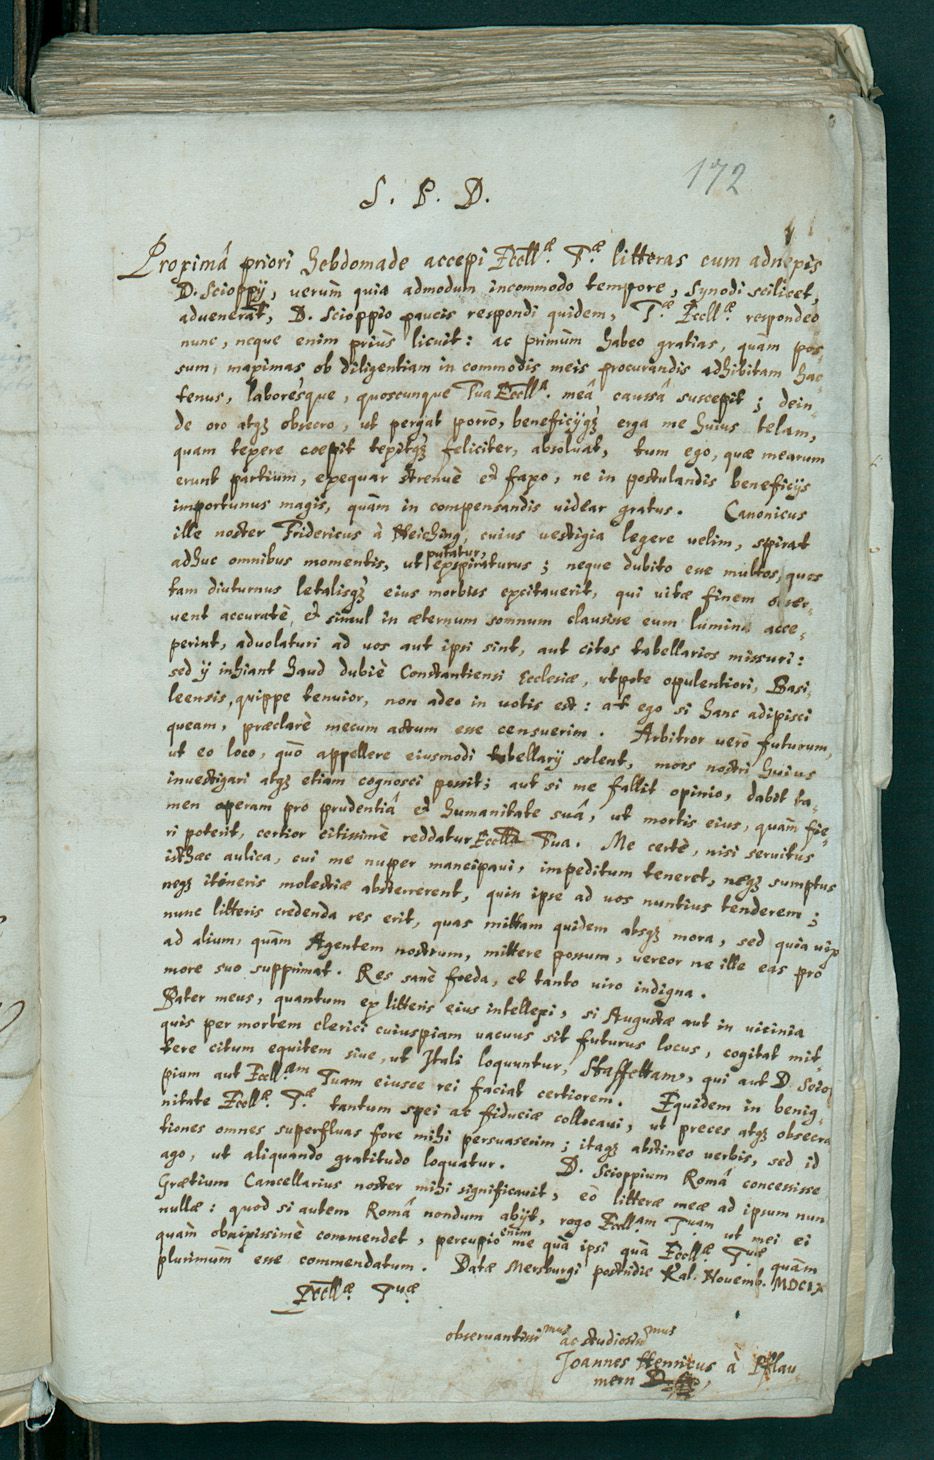 172
S. P. D.
Proximâ priori hebdomade accepi Excllæ. Tæ. litteras cum adnexis
D. Scioppij, verum quia admodum incommodo tempore, Synodi scilicet,
advenerat, D. Scioppio paucis respondi quidem, Tæ. Excllæ. respondeo
nunc, neque enim priùs licuit: ac primùm habeo gratias, quàm pos-
sum, maximas ob diligentiam in commodis meis procurandis adhibitam hac-
tenus, laboresque, quoscunque Tua Excllª. meâ caussâ suscepit; dein-
de oro atqȝ obsecro, ut pergat porrò, beneficijqȝ erga me huius telam,
quam texere coepit texitqȝ feliciter, absolvat, tum ego, quæ mearum
erunt partium, exequar strenuè et faxo, ne in postulandis beneficijs
importunus magis, quàm in compensandis videar gratus. Canonicus
ille noster Fridericus à Heiching, cuius vestigia legere velim, spirat
adhuc omnibus momentis, ut putatur, exspiraturus; neque dubito esse multos, quos
tam diuturnus letalisqȝ eius morbus excitaverit, qui vitæ finem obser-
vent accuratè, et simul in æternum somnum clausisse eum lumina acce-
perint, advolaturi ad vos aut ipsi sint, aut citos tabellarios missuri:
sed ij inhiant haud dubiè Constantiensi Ecclesiæ, utpote opulentiori, Basi-
leensis, quippe tenuior, non adeo in votis est: at ego si hanc adipisci
queam, præclarè mecum actum esse censuerim. Arbitror verò futurum,
ut eo loco, quò appellere eiusmodi tabellarij solent, mors nostri huius
investigari atqȝ etiam cognosci possit; aut si me fallit opinio, dabit ta-
men operam pro prudentiâ et humanitate suâ, ut mortis eius, quàm fie-
ri poterit, certior citissimè reddatur Excllª Tua. Me certè, nisi servitus
isthæc aulica, cui me nuper mancipavi, impeditum teneret, neqȝ sumptus
neqȝ itineris molestiæ absterrerent, quin ipse ad vos nuntius tenderem;
nunc litteris credenda res erit, quas mittam quidem absqȝ mora, sed quia vix
ad alium, quàm Agentem nostrum, mittere possum, vereor ne ille eas pro
more suo supprimat. Res sanè foeda, et tanto viro indigna.
Pater meus, quantum ex litteris eius intellexi, si Augustæ aut in vicinia
quis per mortem clerici cuiuspiam vacuus sit futurus locus, cogitat mit-
tere citum equitem sive, ut Itali loquuntur, Staffettam, qui aut D. Sciop-
pium aut Excll.am Tuam eiusce rei faciat certiorem. Equidem in benig-
nitate Excllæ. Tæ tantum spei ac fiduciæ collocavi, ut preces atqȝ obsecra
tiones omnes superfluas fore mihi persuaserim; itaqȝ abstineo verbis, sed id
ago, ut aliquando gratitudo loquatur. D. Scioppium Româ concessisse
Grætium Cancellarius noster mihi significavit, eò litteræ meæ ad ipsum nun
nullæ: quod si autem Româ nondum abijt, rogo Excll.am Tuam ut mei ei
quàm obnixissimè commendet, percupio enim me quà ipsi quà Excllæ. Tuæ quàm
plurimùm esse commendatum. Datæ Mersburgi postridie Kal. Novemb. MDCIX
Excllæ. Tuæ
observantissimus ac studiosissmus
Joannes Henricus à Pflau-
mern